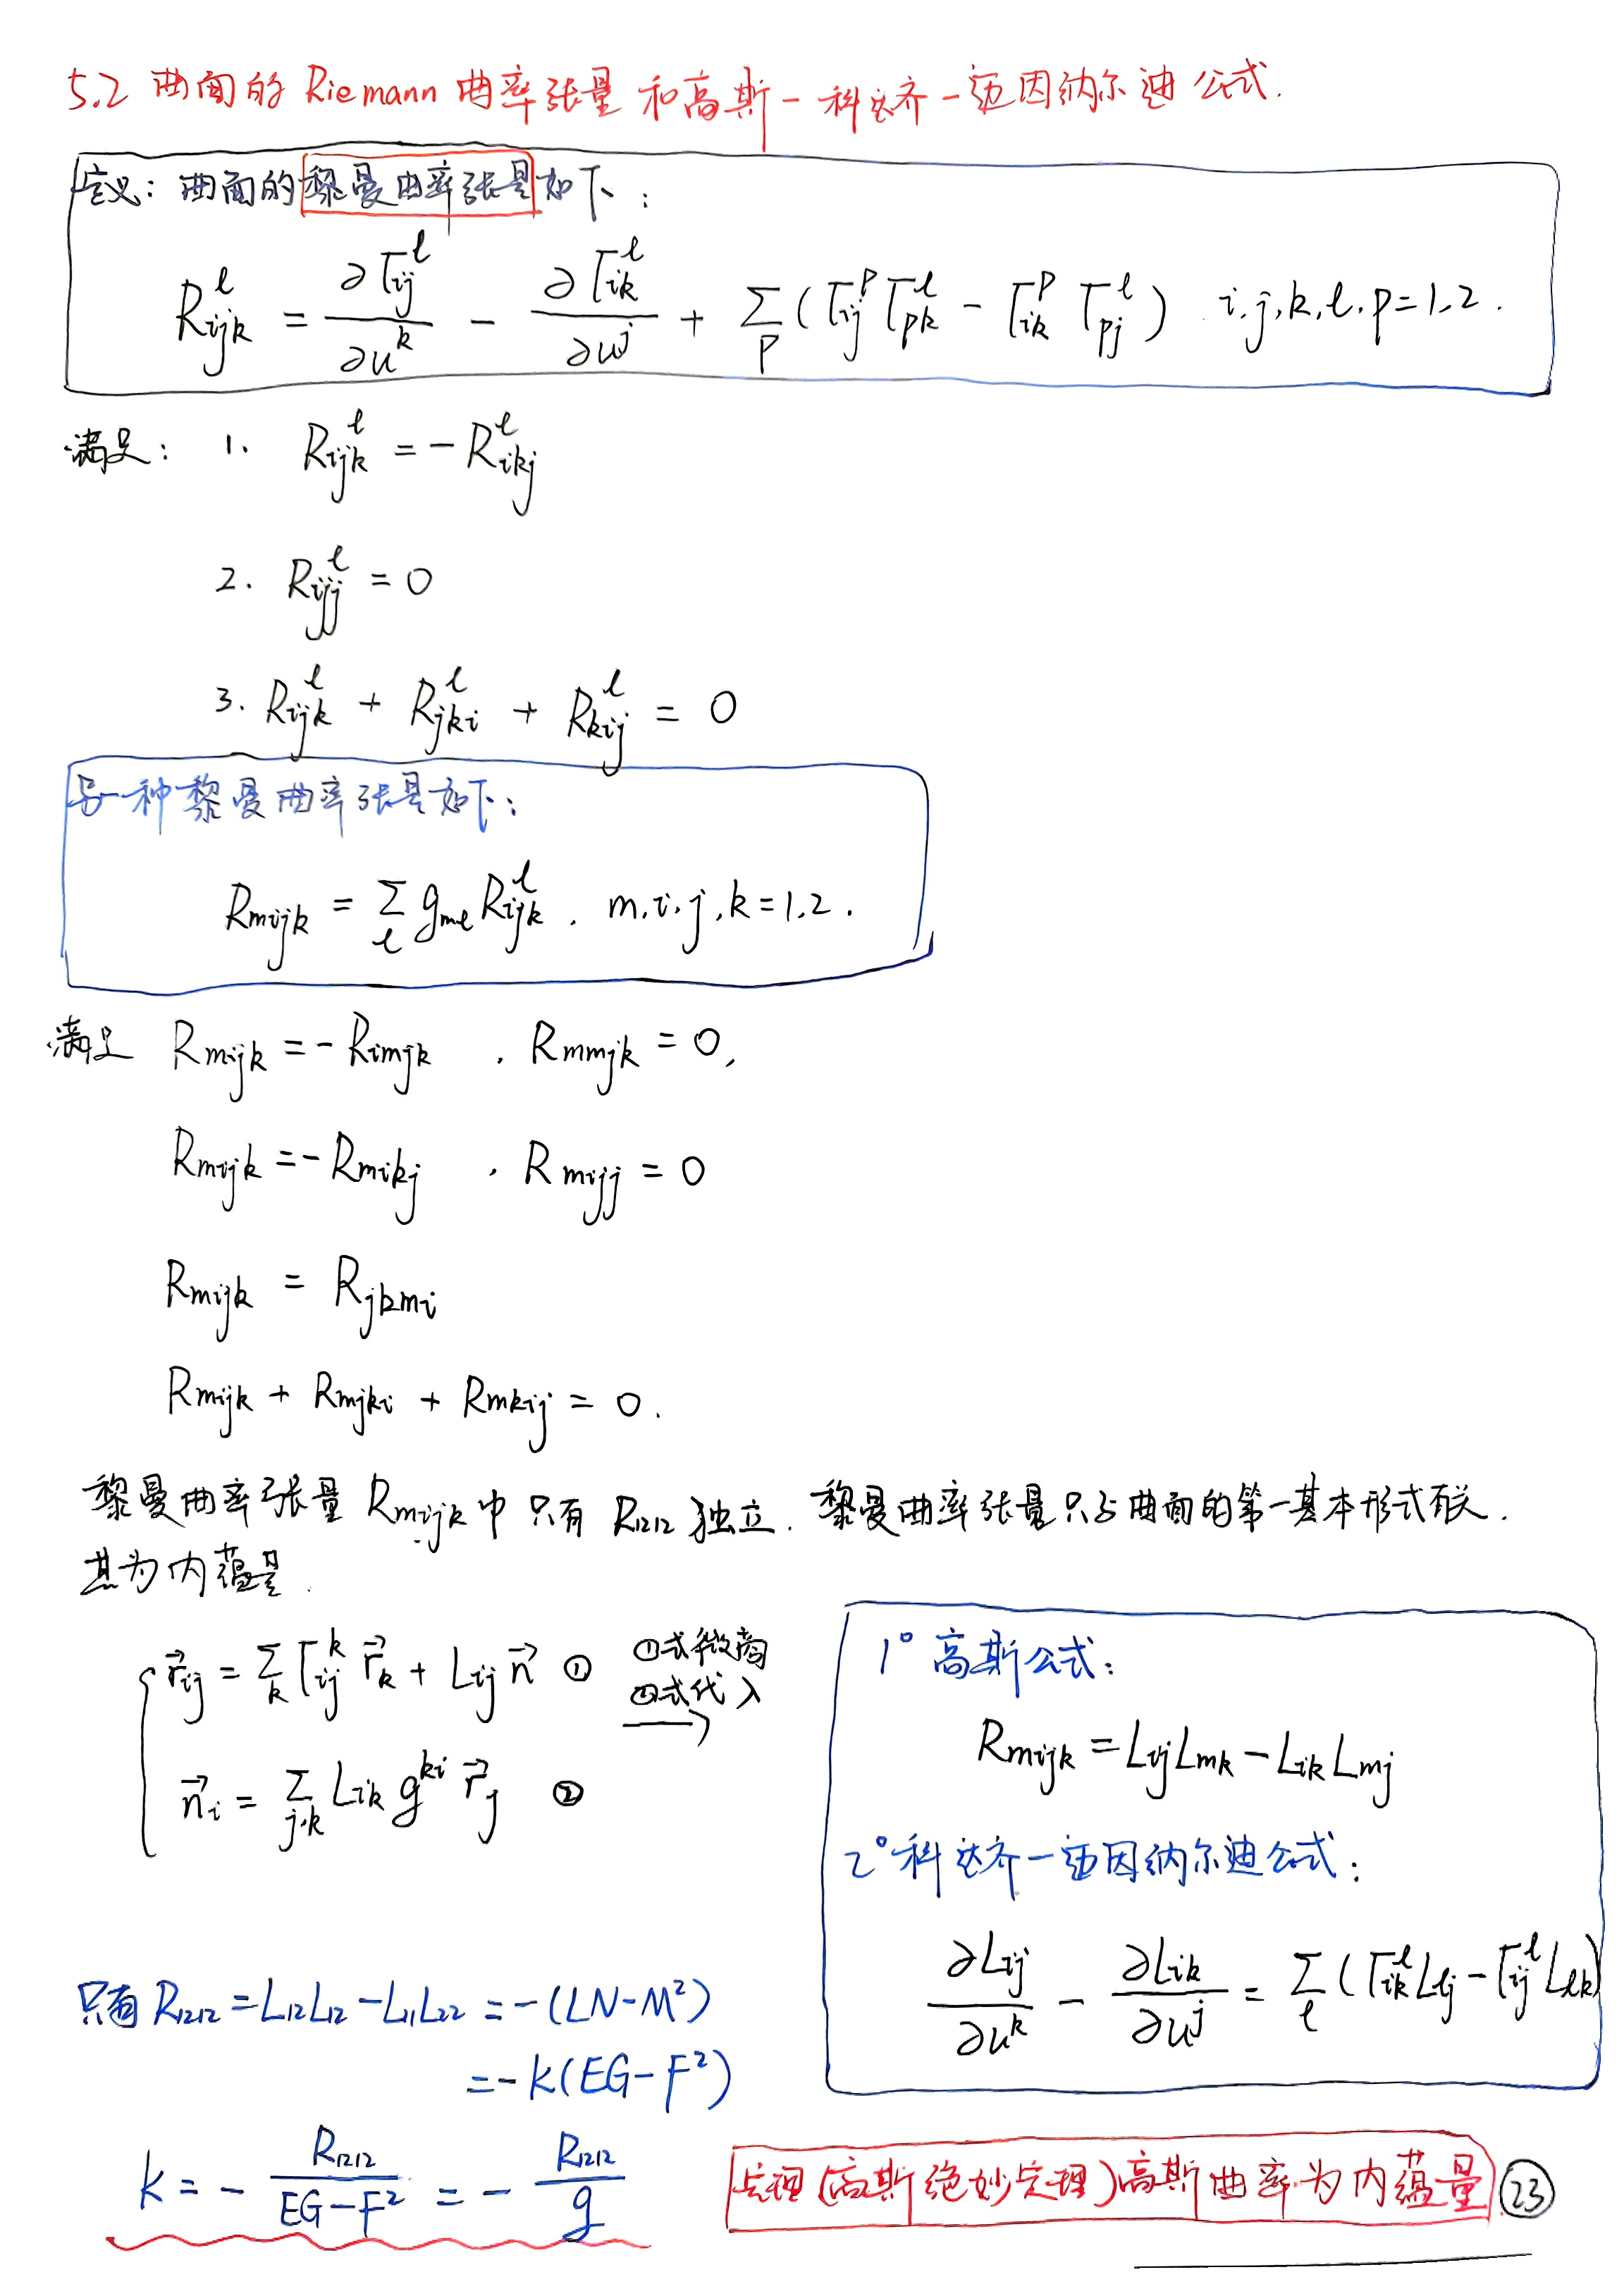 5.2 曲面的 Riemann 曲率张量和高斯-科达齐-迈因纳尔迪公式.
定义: 曲面的黎曼曲率张量如下:
R_{ijk}^l = ∂Γ_{ij}^l/∂u^k - ∂Γ_{ik}^l/∂u^j + Σ_p (Γ_{ij}^p Γ_{pk}^l - Γ_{ik}^p Γ_{pj}^l) . i.j,k,l.p=1,2.
满足: 1. R_{ijk}^l = -R_{ikj}^l
2. R_{ijj}^l = 0
3. R_{ijk}^l + R_{jki}^l + R_{kij}^l = 0
另一种黎曼曲率张量如下:
R_{mijk} = Σ_l g_{ml} R_{ijk}^l . m.i.j,k=1,2.
满足 R_{mijk} = -R_{imjk} . R_{mmjk} = 0,
R_{mijk} = -R_{mikj} . R_{mijj} = 0
R_{mijk} = R_{jkmi}
R_{mijk} + R_{mjki} + R_{mkij} = 0.
黎曼曲率张量 R_{mijk} 中只有 R_{1212} 独立. 黎曼曲率张量只与曲面的第一基本形式有关.
其为内蕴量.
r⃗_{ij} = Σ_k Γ_{ij}^k r⃗_k + L_{ij} n⃗ ① ①式微商
②式代入
→
n⃗_i = Σ_{j,k} L_{ik} g^{ki} r⃗_j ②
1° 高斯公式:
R_{mijk} = L_{ij}L_{mk} - L_{ik}L_{mj}
2° 科达齐-迈因纳尔迪公式:
∂L_{ij}/∂u^k - ∂L_{ik}/∂u^j = Σ_l (Γ_{ik}^l L_{lj} - Γ_{ij}^l L_{lk})
只有 R_{1212} = L_{12}L_{12} - L_{11}L_{22} = -(LN-M²)
= -K(EG-F²)
K = - R_{1212}/(EG-F²) = - R_{1212}/g
定理(高斯绝妙定理)高斯曲率为内蕴量 23